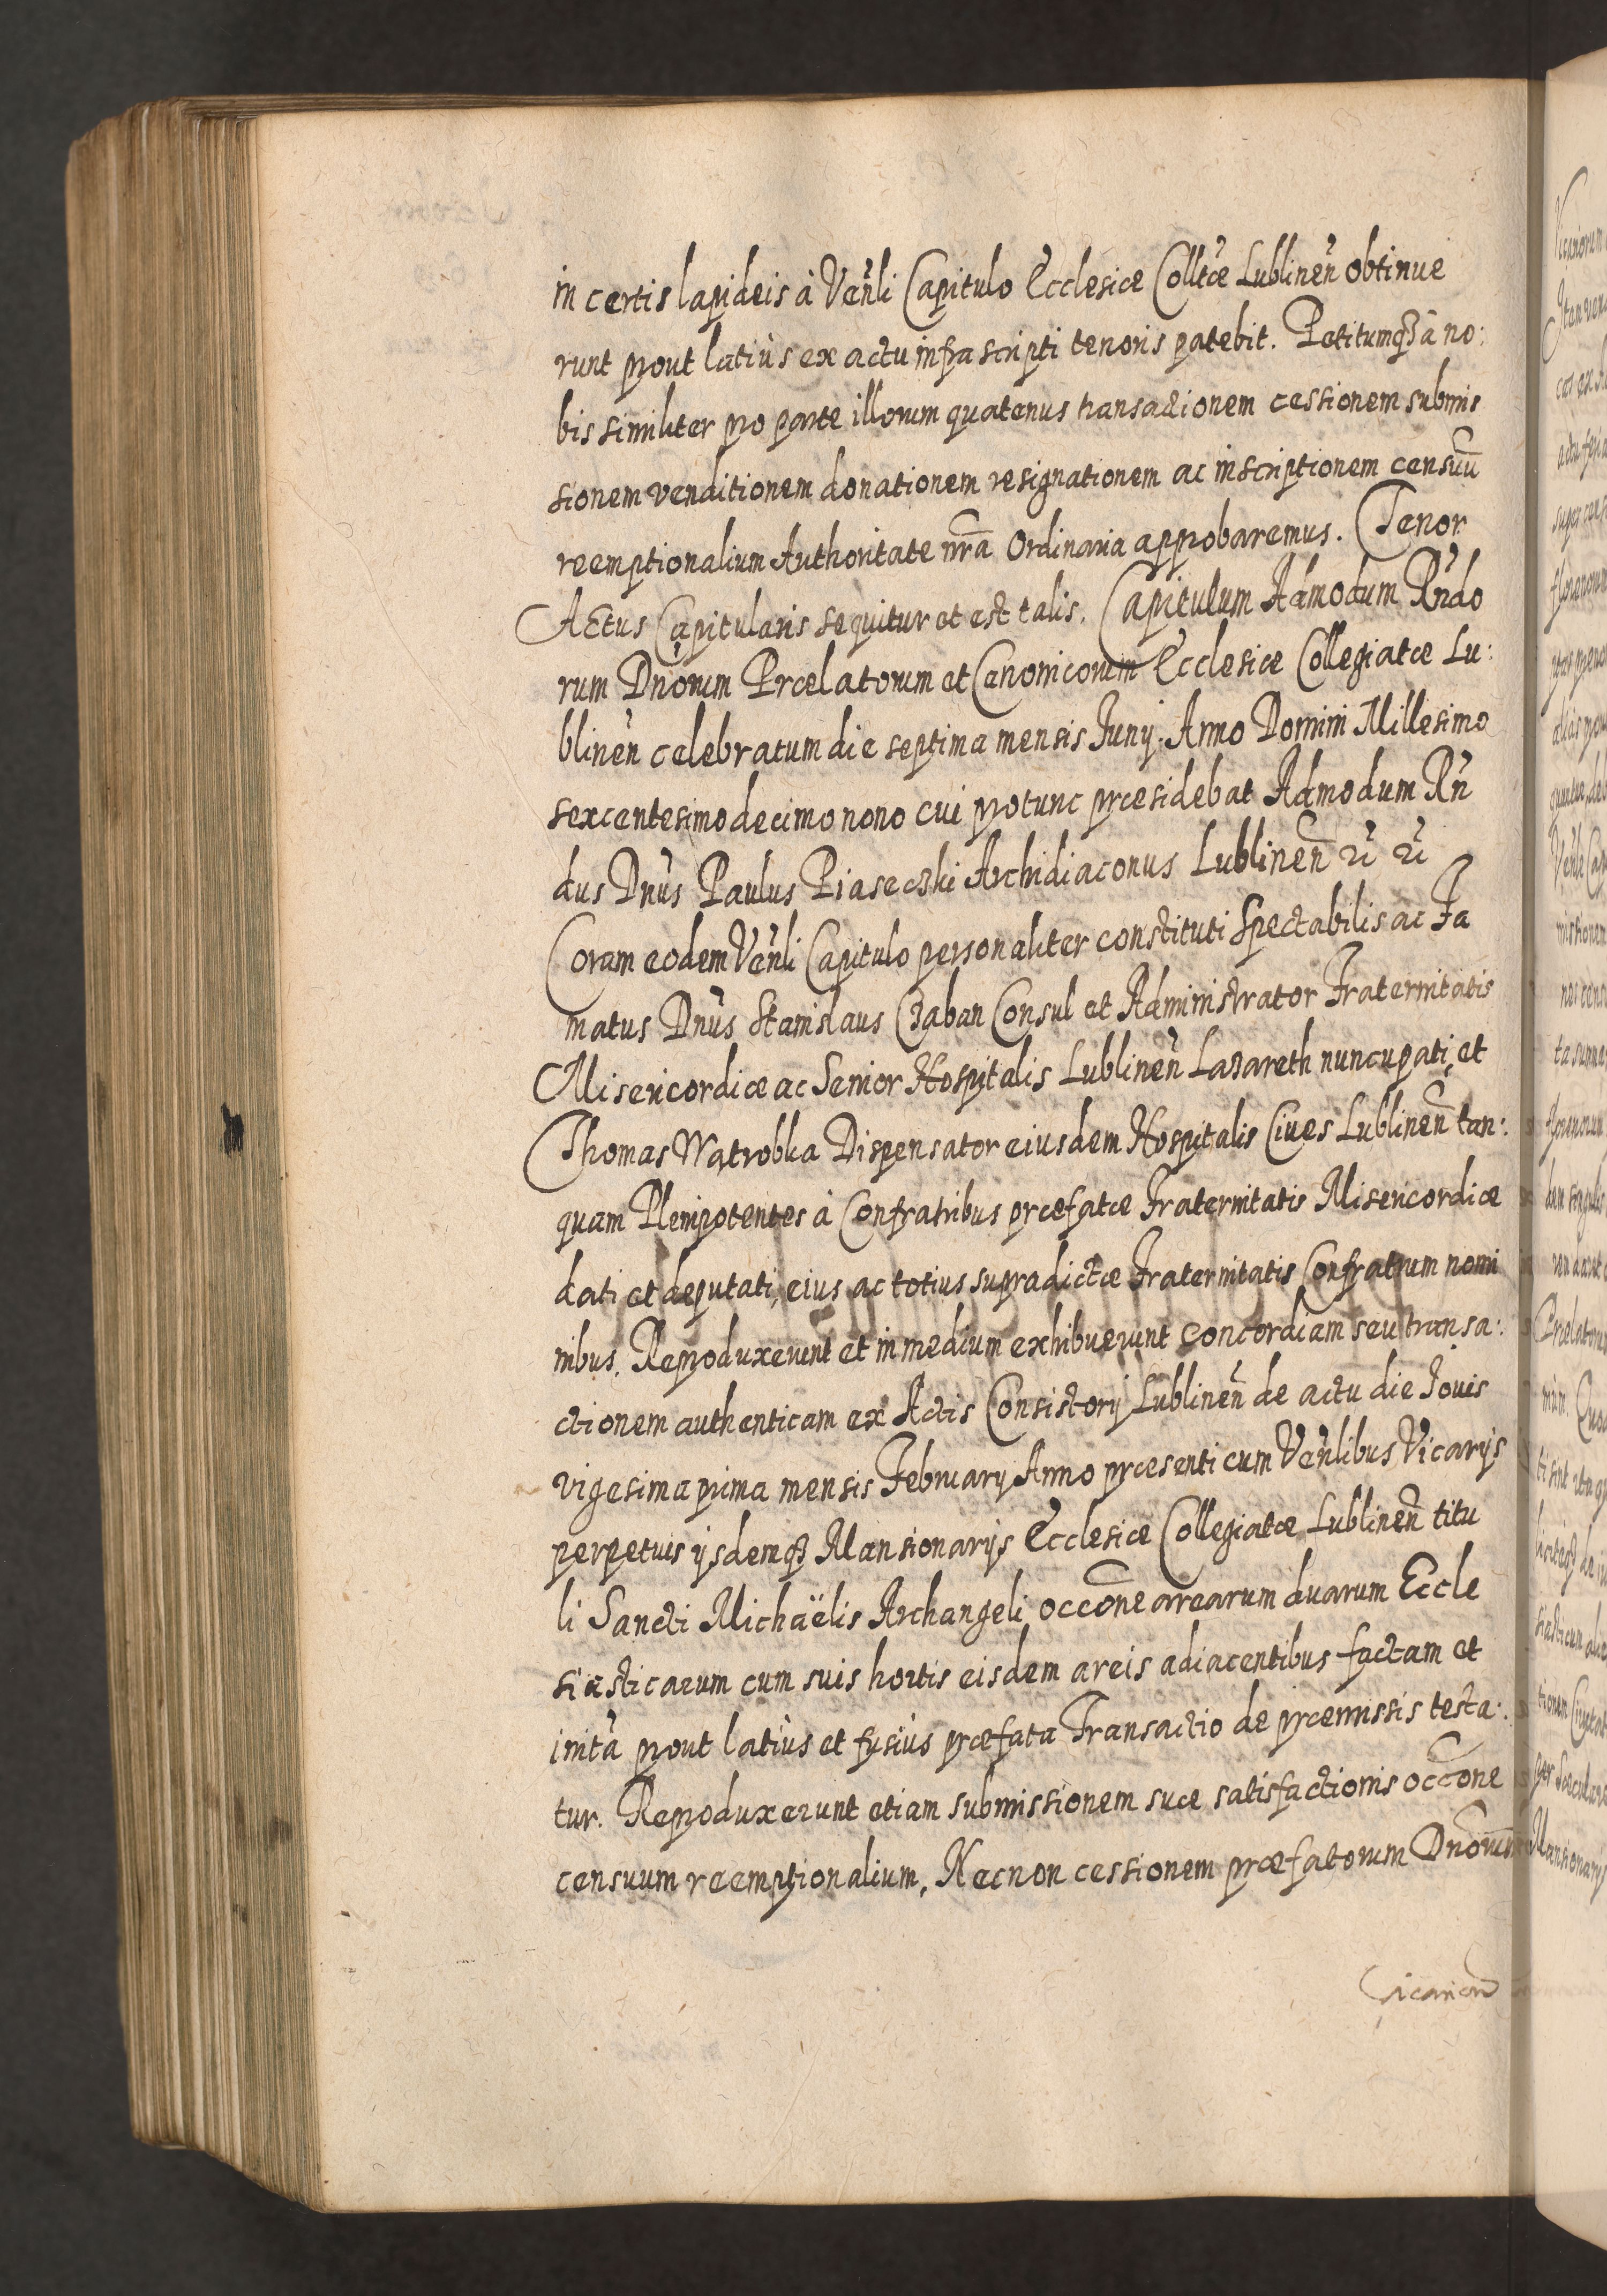 in certis lapideis à Venli Capitulo Ecclesiæ Colltæ Lublinen obtinue
runt prout latiùs ex actu infrascripti tenoris patebit. Petitumq3 à no:
bis similiter pro parte illorum quatenus transactionem cessionem submis
sionem venditionem donationem resignationem ac inscriptionem censuū
reemptionalium Authoritate nrā Ordinaria approbaremus. Tenor
Actus Capitularis sequitur et est talis. Capitulum Admodum Rndo
rum Dnorum Prælatorum et Canonicorum Ecclesiæ Collegiatæ Lu:
blinen celebratum die septima mensis Junij. Anno Domini Millesimo
sexcentesimo decimo nono cui protunc præsidebat Admodum Rn
dus Dnus Paulus Piaseczki Archidiaconus Lublinen
Coram eodem Venli Capitulo personaliter constituti Spectabilis ac Fa
matus Dnus Stanislaus Czaban Consul et Administrator Fraternitatis
Misericordiæ ac Senior Hospitalis Lublinen Lazareth nuncupati, et
Thomas Wątrobka Dispensator eiusdem Hospitalis Ciues Lublinen tan:
quam Plenipotentes à Confratribus præfatæ Fraternitatis Misericordiæ
dati et deputati, eius ac totius supradictæ Fraternitatis Confratrum nomi
nibus. Reproduxerunt et in medium exhibuerunt concordiam seu transa:
ctionem authenticam ex Actis Consistorij Lublinen de actu die Jouis
vigesima prima mensis February Anno præsenti cum Venlibus Vicarijs
perpetuis ijsdemq3 Mansionarijs Ecclesiæ Collegiatæ Lublinen titu
li Sancti Michaëlis Archangeli occone arearum duarum Eccle
siasticarum cum suis hortis eisdem areis adiacentibus factam et
initā prout latiùs et fusiùs præfata Transactio de præmissis testa:
tur. Reproduxerunt etiam submissionem suæ satisfactionis occone
censuum reemptionalium, Necnon cessionem præfatorum Dnorum
Vicariorū